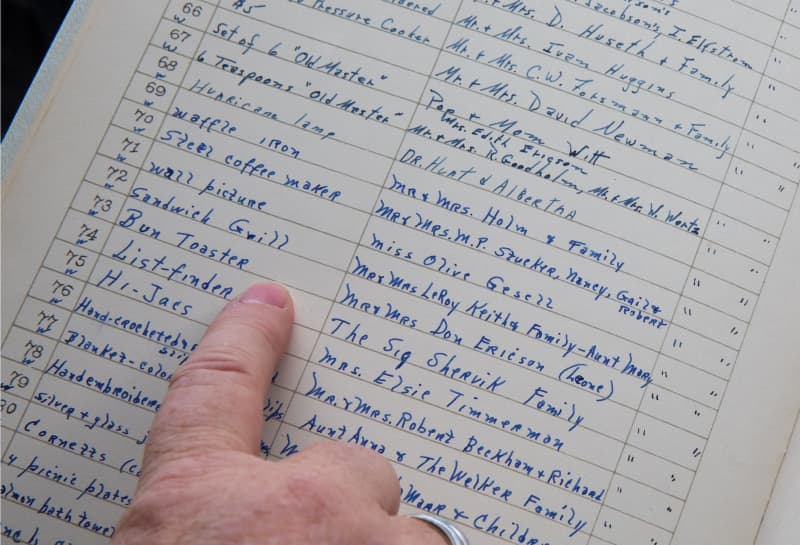 Jacobson's, I. Ekstrom
Mrs. D. Huseth & Family
Mr. & Mrs. Ivan Huggins
Pressure Cooker Mr. & Mrs. C.W. Forsmann & Family
66 w Mr. & Mrs. David Newman "
67 w Set of 6 "Old Master" Pop & Mom Witt "
68 w 6 Teaspoons "Old Master" Mrs. Edith Ericson
Mr. & Mrs. R. Goodholm, Mr. & Mrs. W. Wentz "
69 w Hurricane lamp Dr. Hunt & Albertha "
70 w Waffle iron Mr & Mrs. Holm & Family "
71 w Steel coffee maker Mr & Mrs. M.P. Szueker, Nancy, Gail & Robert "
72 w Wall picture Miss Olive Gesell "
73 w Sandwich Grill Mr & Mrs LeRoy Keith & Family - Aunt Mary "
74 w Bun Toaster Mr & Mrs Don Ericson (Leone) "
75 w List-finder The Sig Shervik Family "
76 w Hi-Jacs Mrs. Elsie Timmerman "
77 w Hand-crocheted Mr. & Mrs. Robert Beckham & Richard "
78 w Blanket-colo Aunt Anna & The Welker Family "
79 w Hand embroidere & Childr
silver & glass
picnic plates
bath towel